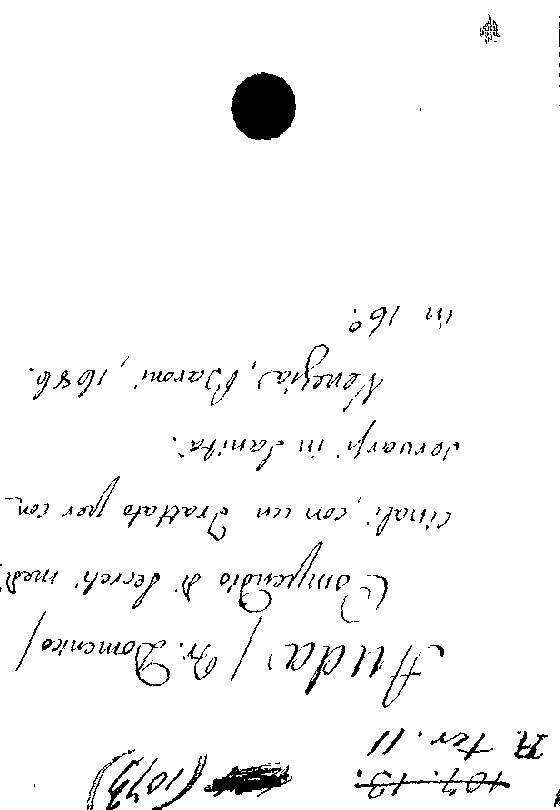 107. 13. (1073)
R ter. 11
Auda / Fr. Domenico /
Compendio di Secreti medi
cinali, con un Trattato per con_
servarsi in Sanità.
Venezia, Baroni, 1686.
in 16º.